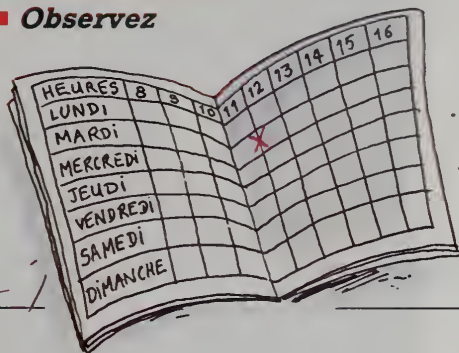 Observez
HEURES 8 9 10 11 12 13 14 15 16
LUNDI
MARDI
MERCREDI
JEUDI
VENDREDI
SAMEDI
DIMANCHE